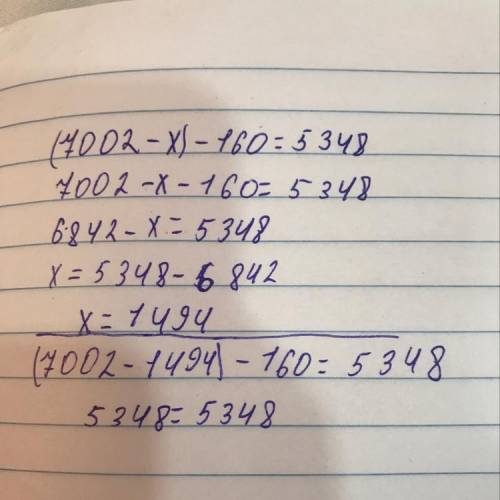 (7002-x)-160=5348
7002-x-160=5348
6842-x=5348
x=5348-6842
x=1494
(7002-1494)-160=5348
5348=5348